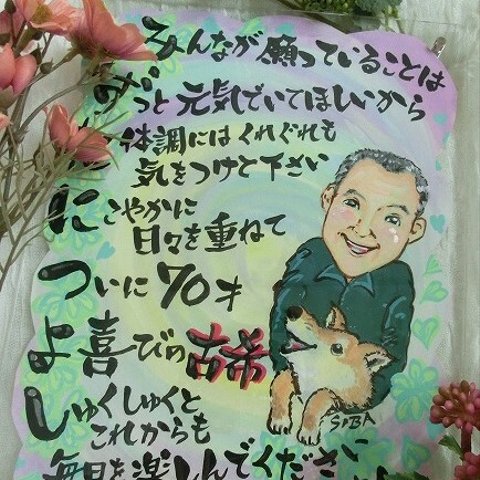 みんなが願っていることは
のずっと元気でいてほしいから
体調にはくれぐれも
気をつけて下さい
にこやかに
日々を重ねて
ついに70才
よ喜びの古希
しゅくしゅくと
これからも
毎日を楽しんでください
SOBA